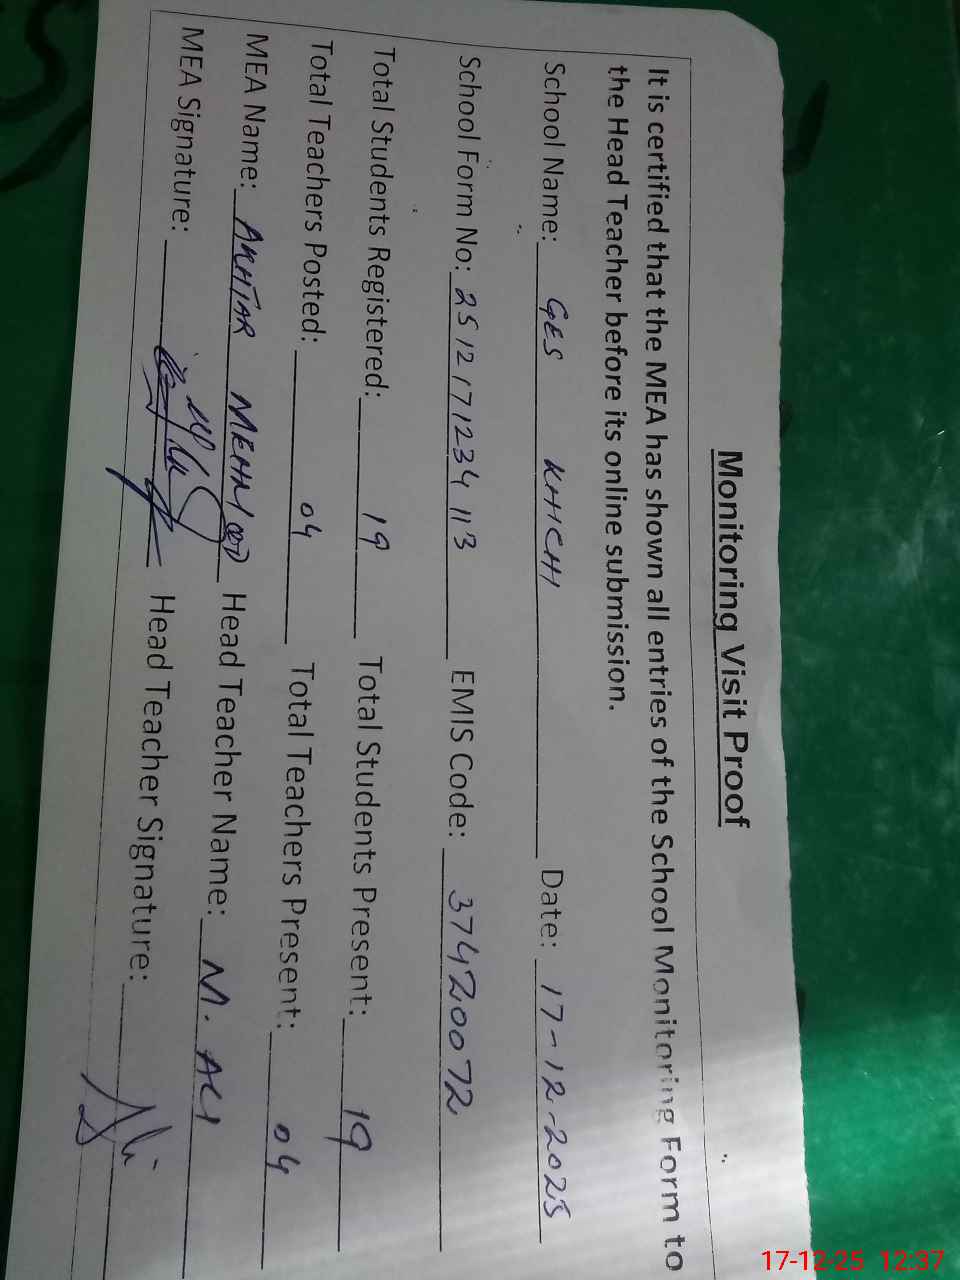 Monitoring Visit Proof
It is certified that the MEA has shown all entries of the School Monitoring Form to
the Head Teacher before its online submission.
School Name: GES KHICHI Date: 17-12-2025
School Form No: 2512171234113 EMIS Code: 37420072
Total Students Registered: 19 Total Students Present: 19
Total Teachers Posted: 04 Total Teachers Present: 04
MEA Name: AKHTAR MEHMOOD Head Teacher Name: M. ALI
MEA Signature: Head Teacher Signature:
17-12-25 12:37